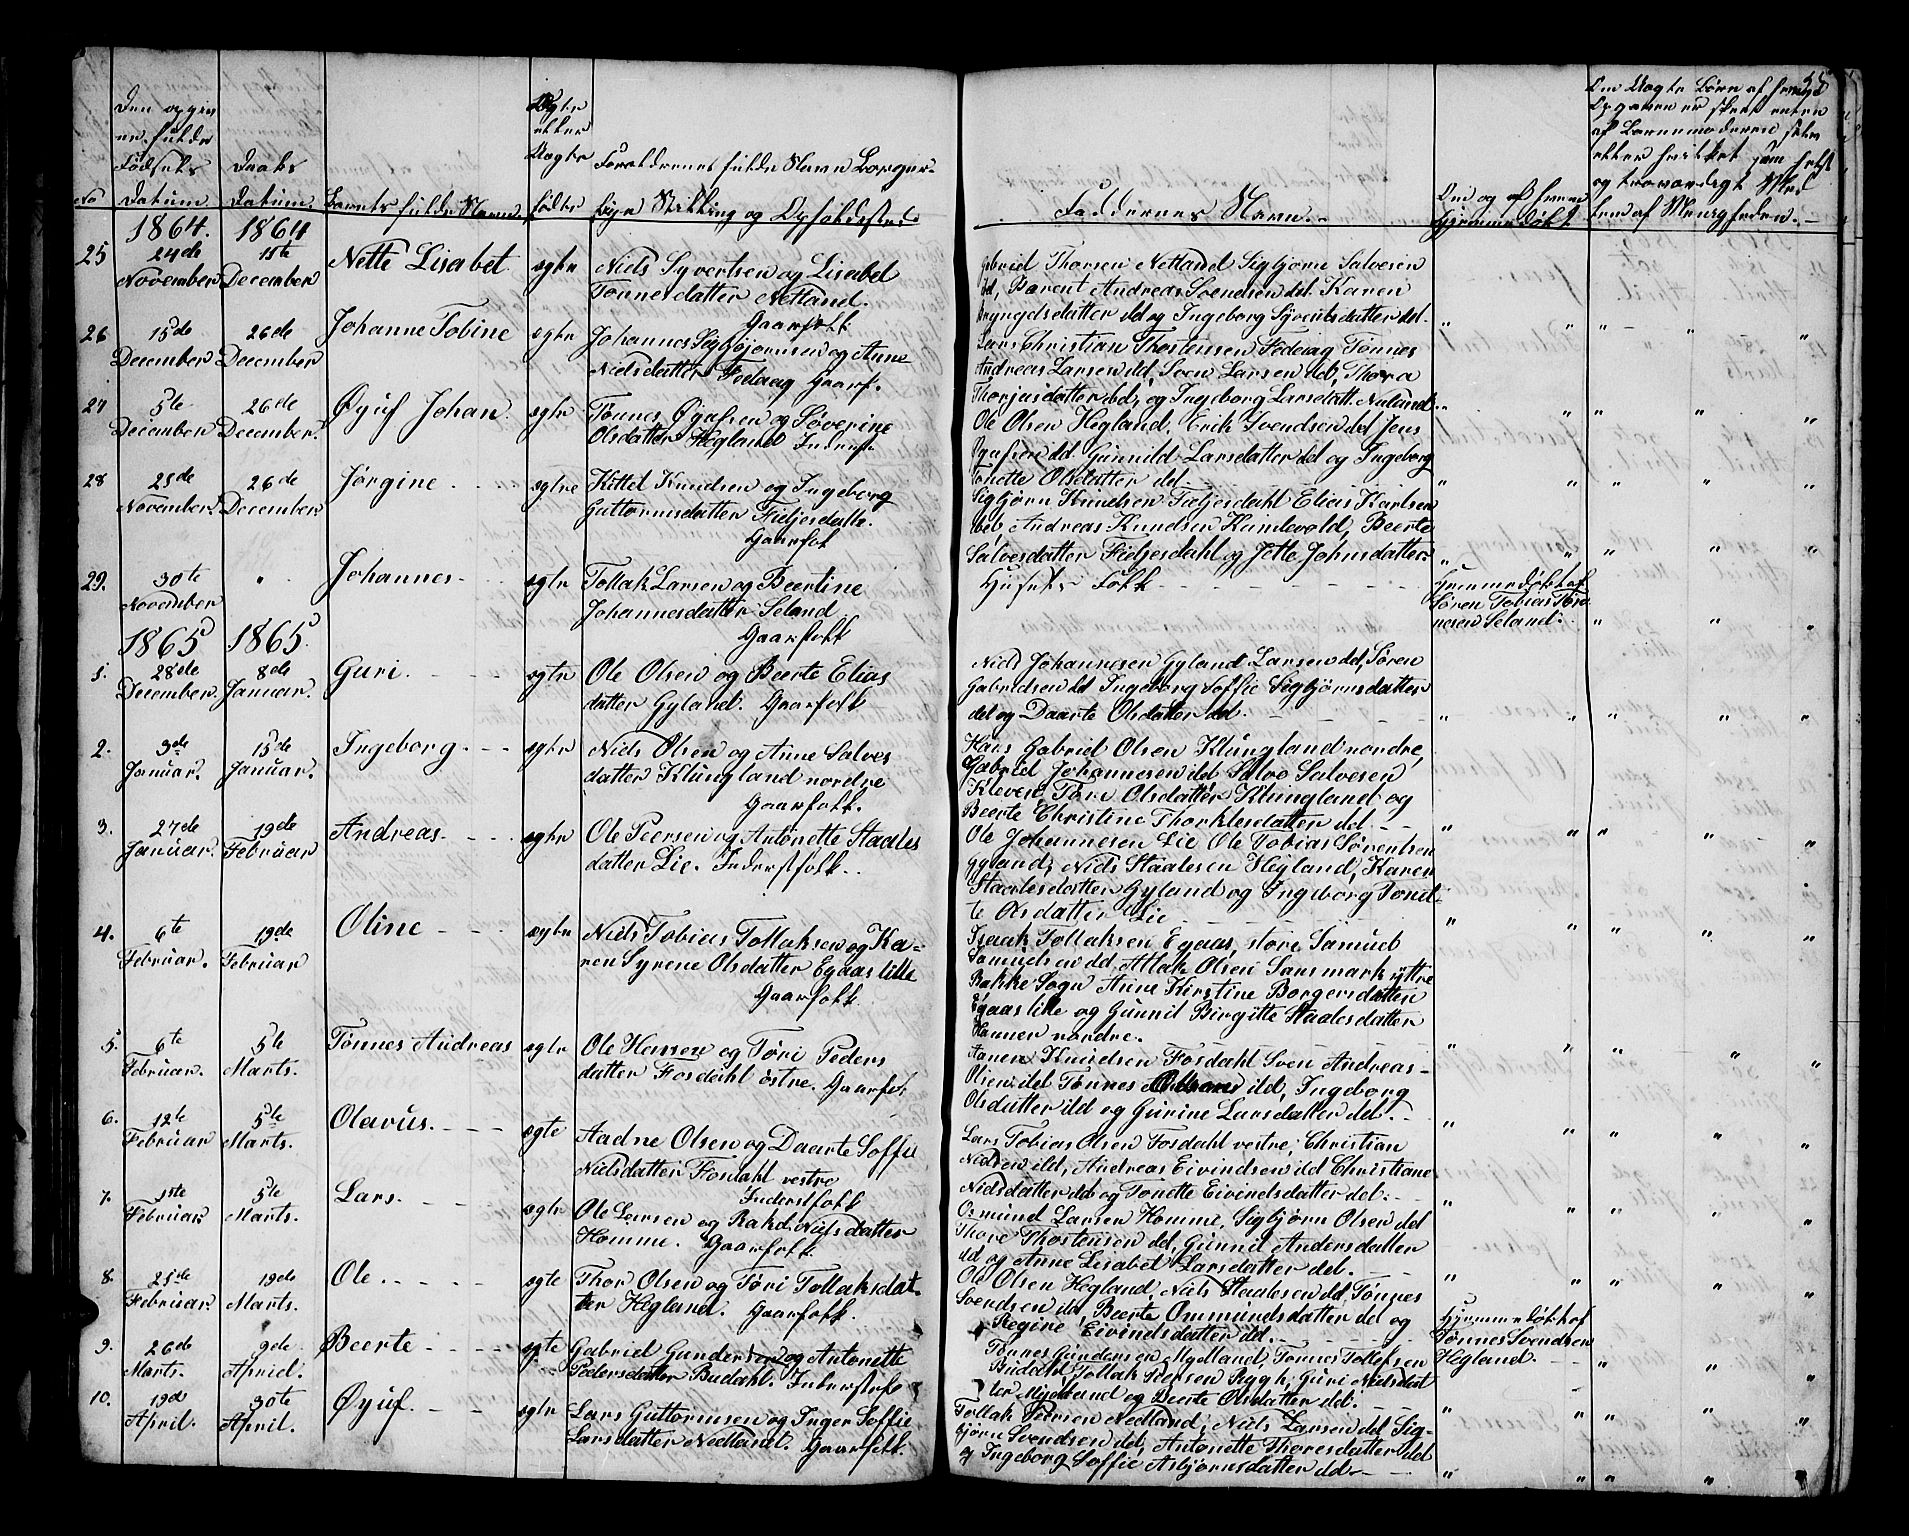 No
Den opgivne fulde Fødsels Datum.
Daabs Datum.
Barnets fulde Navn.
Ægte eller Uægte fødte
Forældrenes fulde Navn Borgerlige Stilling og Opholdssted.
Faddernes Navn.
Om og af hvem Hjemmedøbt.
55
1864. 1864
25 24de November 11te December Nette Lisabet ægte Niels Syvertsen og Lisabet
Tønnesdatter Netland.
Gaarfolk.
Gabriel Thorsen Netland Sigbjørn Salvesen
dd, Barent Andreas Svendsen dd. Karen
Bryngelsdatter dd og Ingeborg Syvertsdatter dd.
26 15de December 26de December Johanne Tobine ægte Johannes Sigbjørnsen og Anne
Nielsdatter Fedaag Gaarf.
Lars Christian Thostensen Fedaag Tønnes
Andreas Larsen dd, Sven Larsen dd, Thora
Thorjusdatter dd, og Ingeborg Larsdatt. Nuland.
27 5te December 26de December. Øyuf Johan. ægte Tønnes Øyufsen og Søverine
Olsdatter Hegland Inderst.
Ole Olsen Hegland, Erik Svendsen dd Jens
Øyufsen dd Gunnild Larsdatter dd og Ingeborg
Tonette Olsdatter dd.
28 21de November. 26de December Jørgine ægte Kittel Knudsen og Ingeborg
Guttormsdatter Fidjesdahl.
Gaarfolk
Sigbjørn Knudsen Fidjesdahl Elias Karlsen
dd, Andreas Knudsen Kumlevold, Beerte
Salvesdatter Fidjesdahl og Jette Johnsdatter
29. 30te November Johannes ægte Tollak Larsen og Beertine
Johannesdatter Seland.
Gaarfolk
Husets Folk
Hjemmedøbt af
Søren Tobias Tøn
nesen Seland.
1865 1865.
1. 28de December. 8de Januar. Guri. ægte Ole Olsen og Beerte Elias
datter Gyland. Gaarfolk
Niels Johannesen Gyland Larsen dd, Søren
Gabrielsen dd Ingeborg Soffie Sigbjørnsdatter
dd og Daarte Olsdatter dd.
2. 3de Januar. 15de Januar. Ingeborg. ægte Niels Olsen og Anne Salves
datter Klungland nordre
Gaarfolk.
Hans Gabriel Olsen Klungland nordre,
Gabriel Johannesen dd Salve Salvesen
Kleven Tøri Olsdatter Klungland og
Beerte Christine Thorkelsdatter dd.
3. 27de Januar. 19de Februar Andreas. ægte Ole Peersen og Antonette Staales
datter Lie. Inderstfolk.
Ole Johannesen Lie Ole Tobias Sørensen
Gyland, Niels Staalesen Hegland, Karen
Staalesdatter Gyland og Ingeborg Tonet-
te Olsdatter Lie
4. 6te Februar. 19de Februar Oline ægte Niels Tobias Tollaksen og Ka-
ren Syrene Olsdatter Egaas lille
Gaarfolk.
Isaak Tollaksen Egaas, store Samuel
Samuelsen dd, Atlak Olsen Sansmark yttre
Bakke Sogn Anne Kirstine Borgersdatter
Egaas lille og Gunnil Birgitte Staalesdatter
Hanner nordre.
5. 6te Februar. 5te Marts. Tønnes Andreas ægte Ole Hansen og Tøri Peders
datter Fosdahl østre. Gaarfol
Aanen Knudsen Fosdahl Sven Andreas
Olsen dd Tønnes dd, Ingeborg
Olsdatter dd og Gurine Larsdatter dd.
6. 12te Februar 5te Marts. Olavus. ægte Aadne Olsen og Daarte Soffie
Nielsdatter Fosdahl vestre
Inderstfolk
Lars Tobias Olsen Fosdahl vestre, Christian
Nielsen dd, Andreas Eivindsen dd Christiane
Nielsdatter dd og Tonette Eivindsdatter dd.
7. 1ste Februar 5te Marts. Lars. ægte Ole Larsen og Rakel Nielsdatter
Homme. Gaarfolk
Ommund Larsen Homme, Sigbjørn Olsen dd
Thore Thostensen dd, Gunnil Andersdatter
dd og Anne Lisabet Larsdatter dd.
8. 21de Februar. 19de Marts. Ole ægte Thor Olsen og Tøri Tollaksdat-
ter Hegland. Gaarfolk.
Ole Olsen Hegland, Niels Staalesen dd, Tønnes
Svendsen dd, Beerte Ommundsdatter dd og
Regine Eivindsdatter dd.
Hjemmedøbt af
Tønnes Svendsen
Hegland.
9. 26de Marts. 9de April. Beerte ægte Gabriel Gundersen og Antonette
Pedersdatter Budahl. Inderstfolk
Tønnes Gundersen Mydland, Tønnes Tollefsen
Budahl, Tollak Peersen Rygh, Guri Nielsdat
ter Mydland og Beerte Olsdatter dd.
10. 19de April. 30te April. Øyuf. ægte Lars Guttormsen og Inger Soffie
Larsdatter Nedland. Gaarfolk.
Tollak Peersen Nedland, Niels Larsen dd Sig-
bjørn Svendsen dd, Antonette Thoresdatter dd
og Ingeborg Soffie Asbjørnsdatter dd